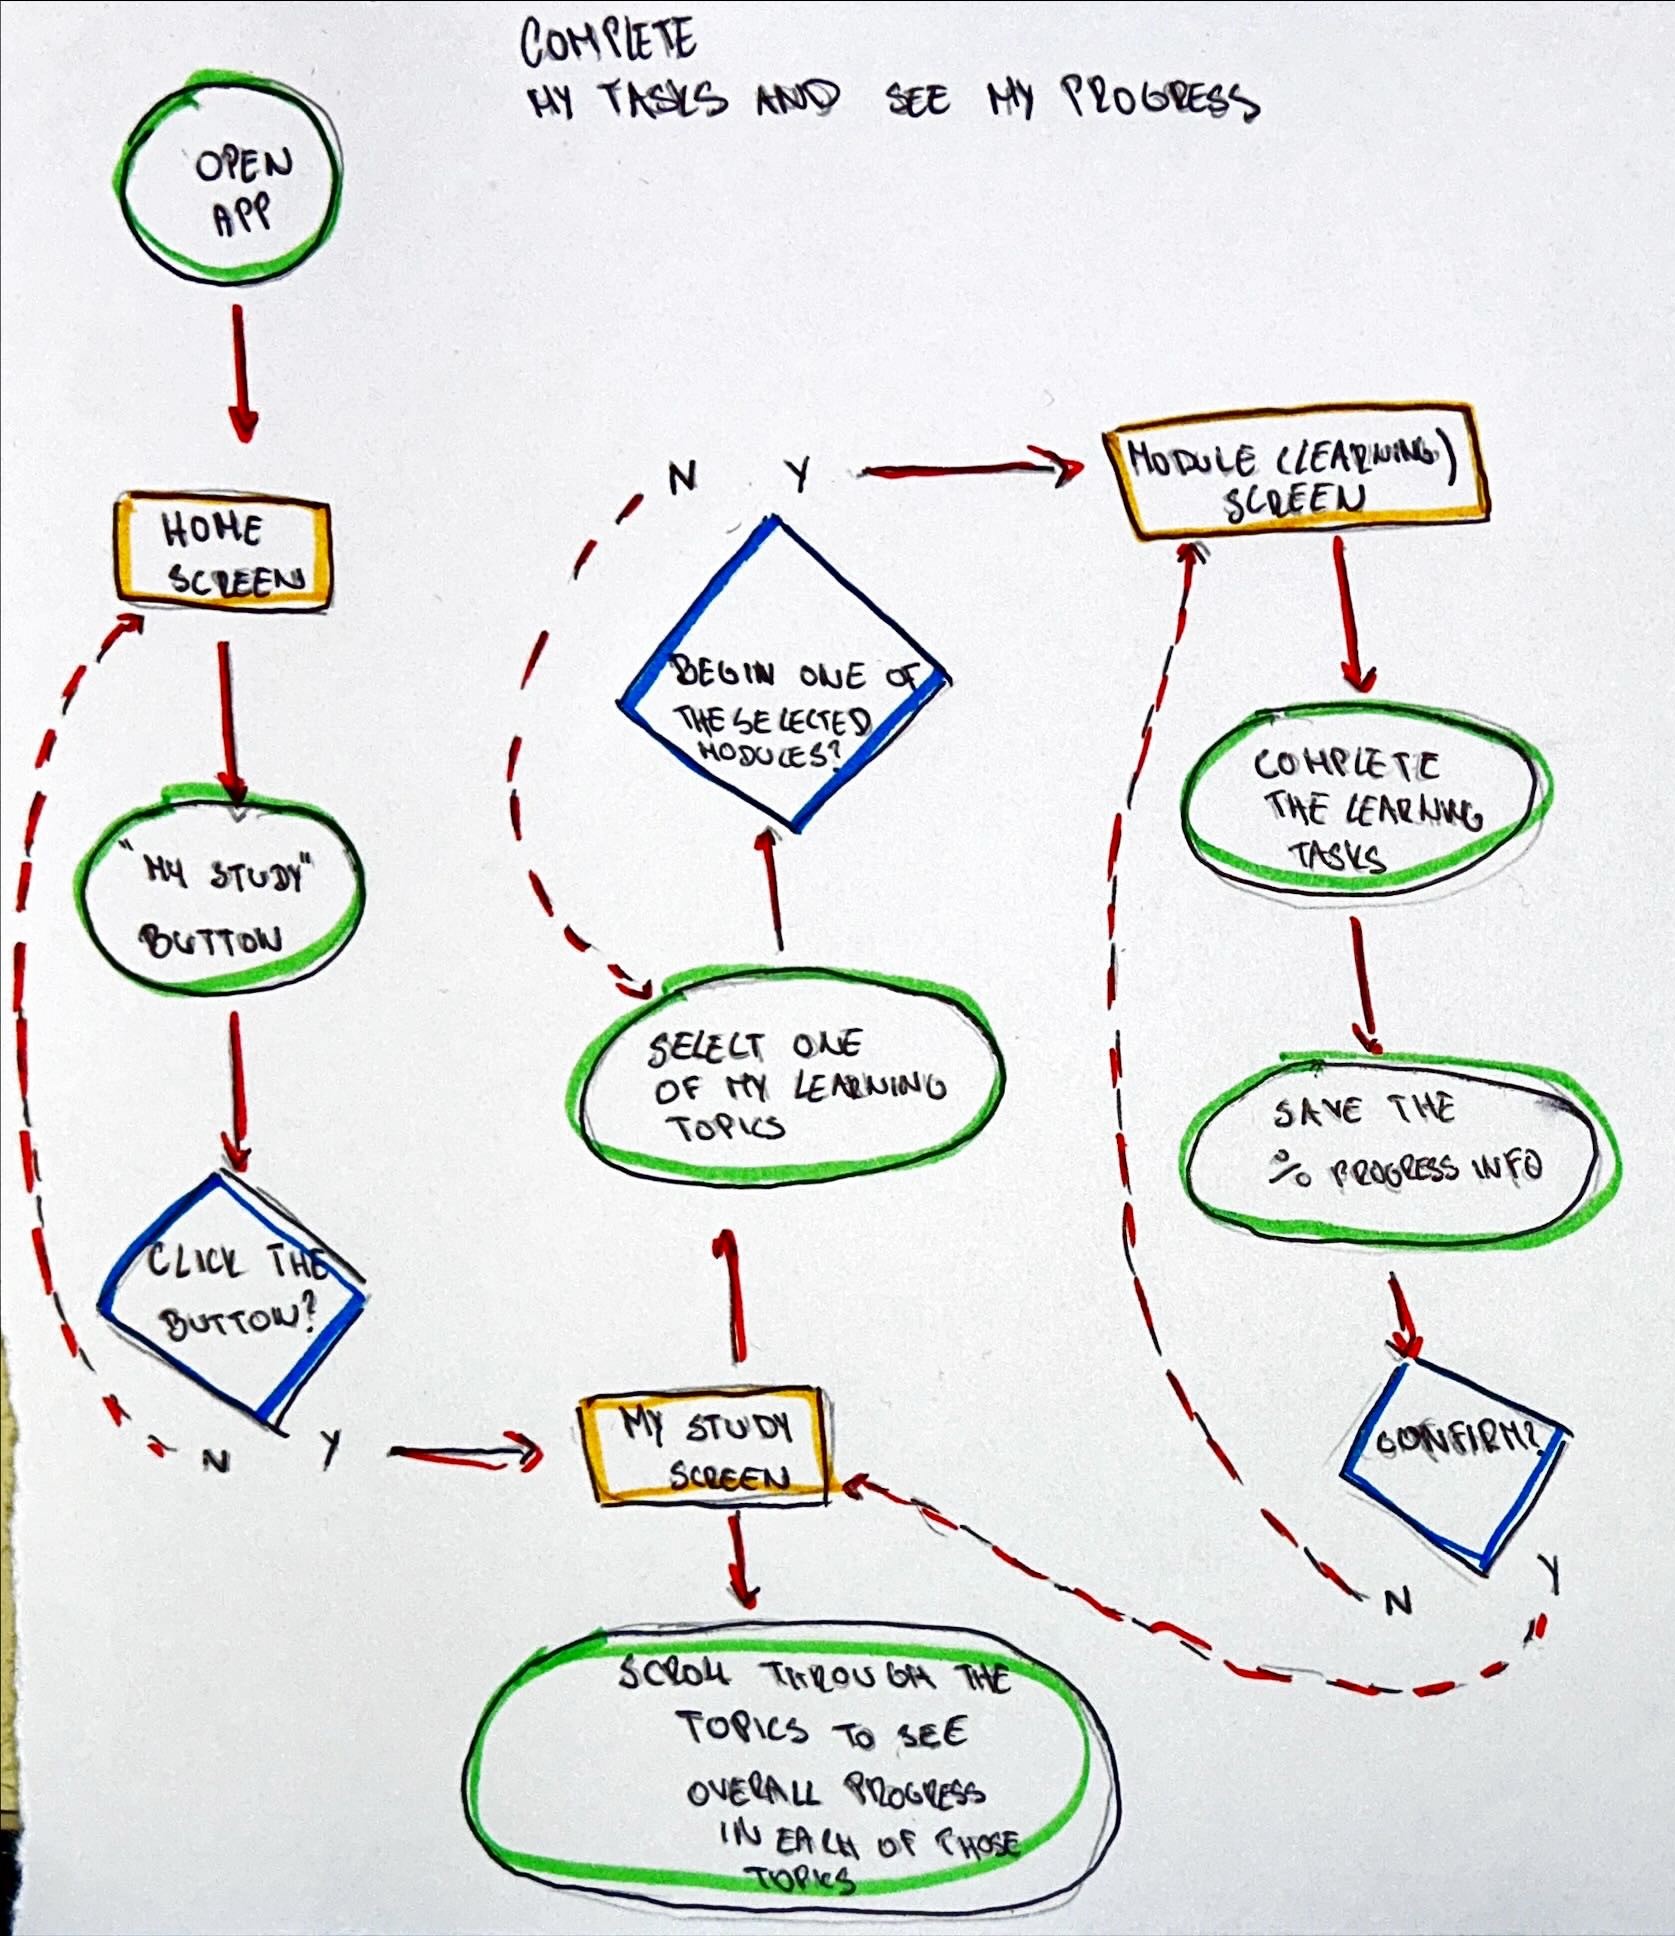 COMPLETE
MY TASKS AND SEE MY PROGRESS
OPEN
APP
HOME
SCREEN
"MY STUDY"
BUTTON
CLICK THE
BUTTON?
N Y
MY STUDY
SCREEN
SCROLL THROUGH THE
TOPICS TO SEE
OVERALL PROGRESS
IN EACH OF THOSE
TOPICS
SELECT ONE
OF MY LEARNING
TOPICS
BEGIN ONE OF
THE SELECTED
MODULES?
N Y
MODULE (LEARNING)
SCREEN
COMPLETE
THE LEARNING
TASKS
SAVE THE
% PROGRESS INFO
CONFIRM?
N Y